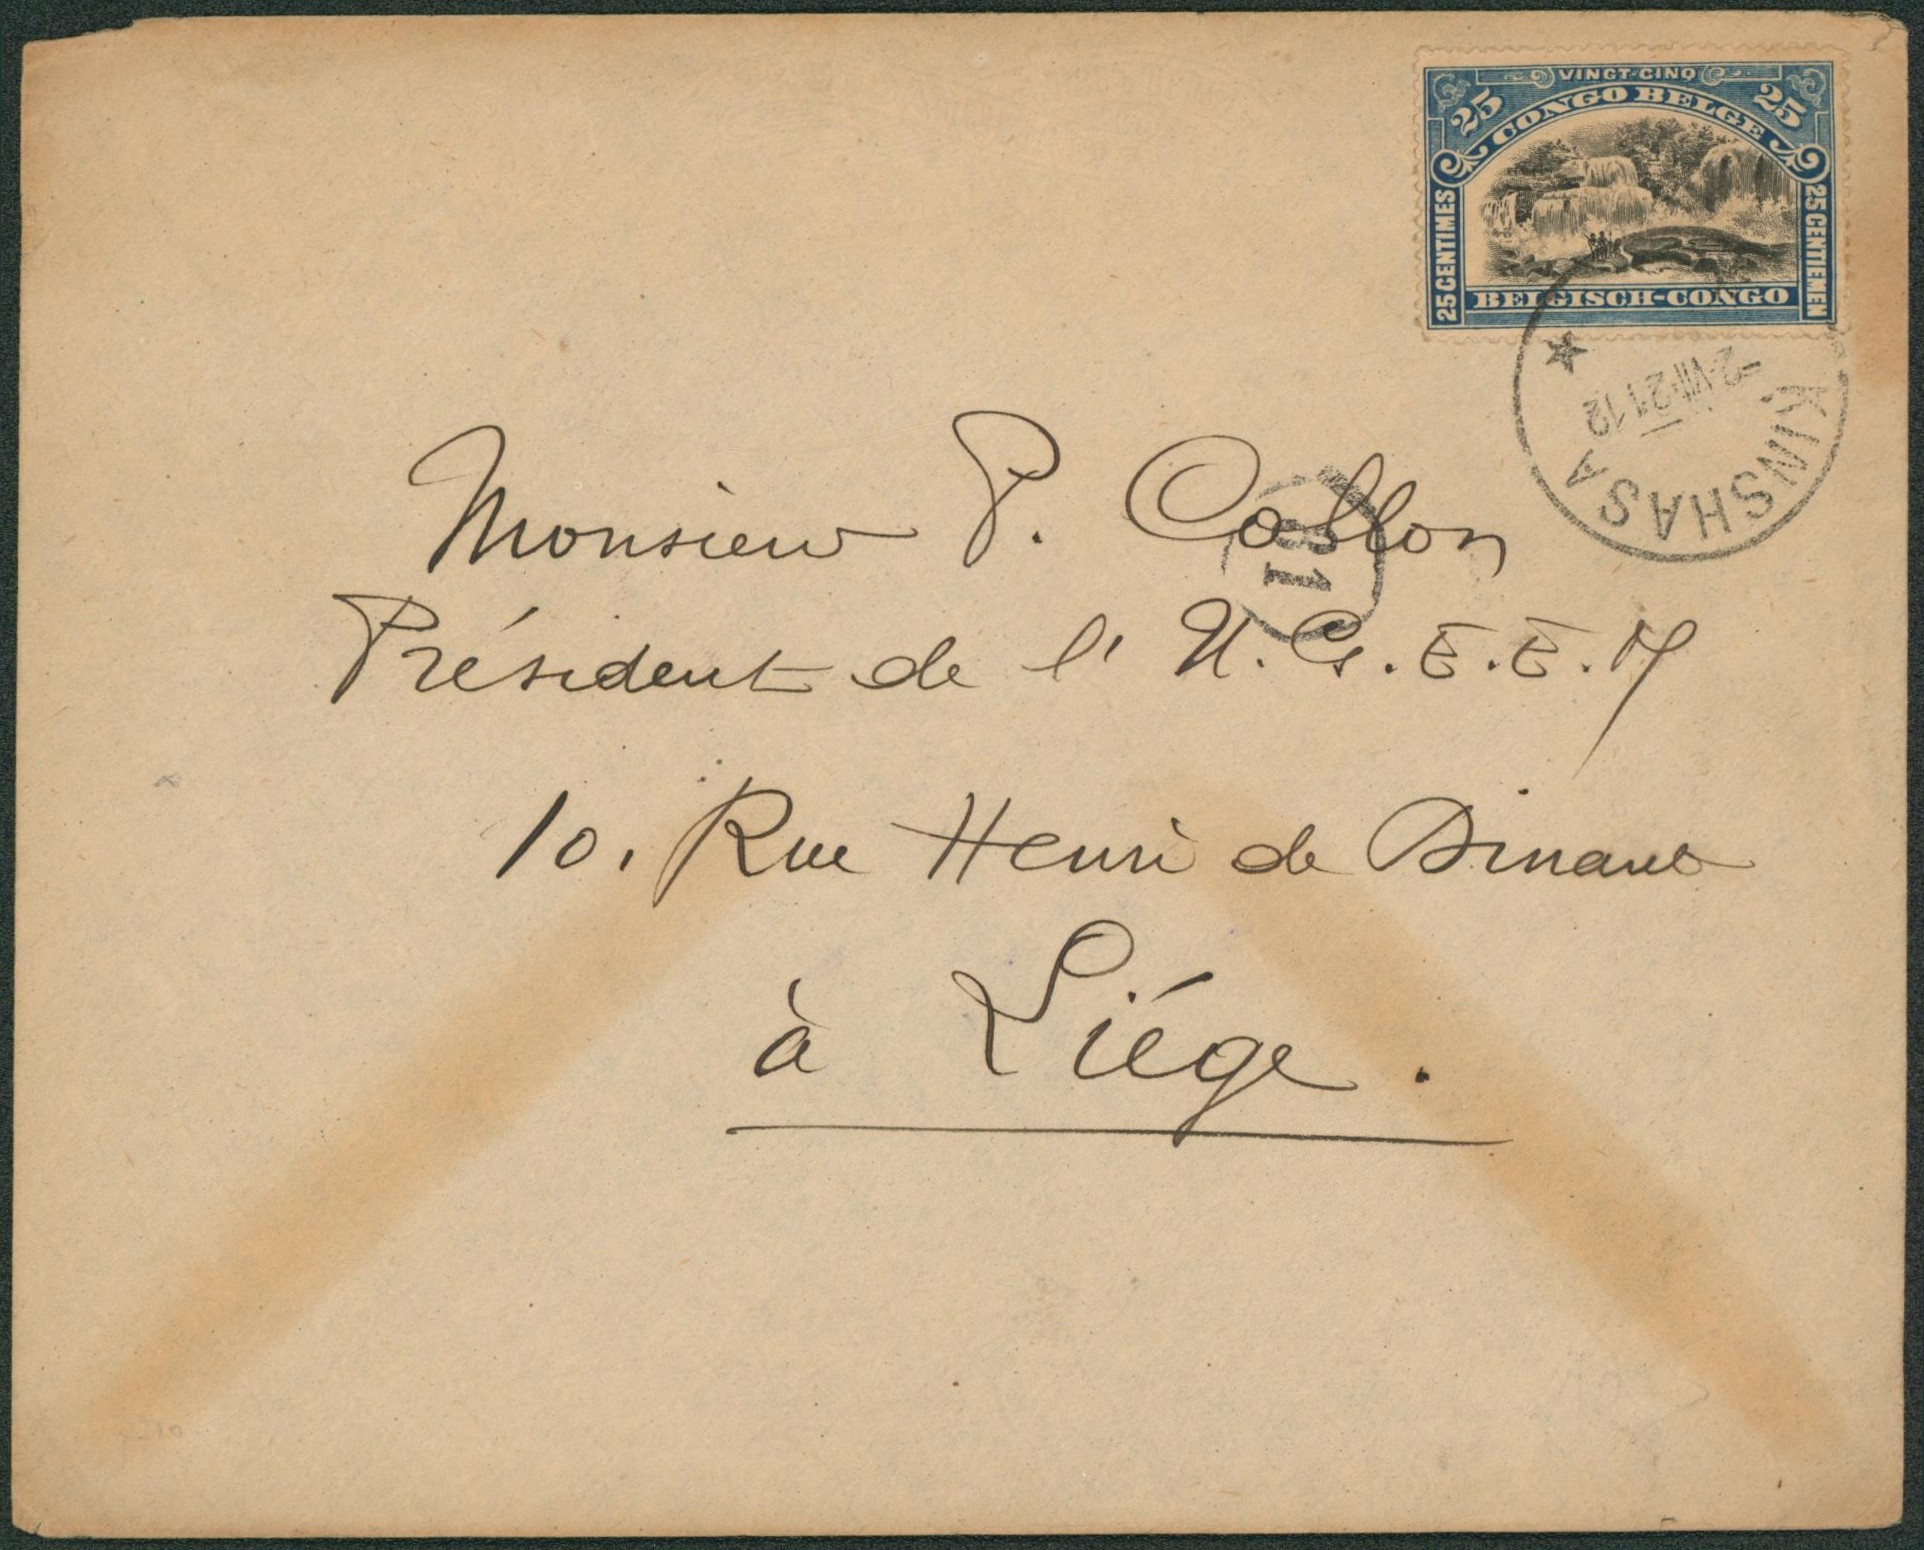 VINGT-CINQ
25 CONGO BELGE 25
25 CENTIMES
25 CENTIEMEN
BELGISCH-CONGO
KINSHASA
-2·VIII·21 12
Monsieur P.
81
Président de l' U. G. E. E. M
10. Rue Henri de Dinant
à Liége.